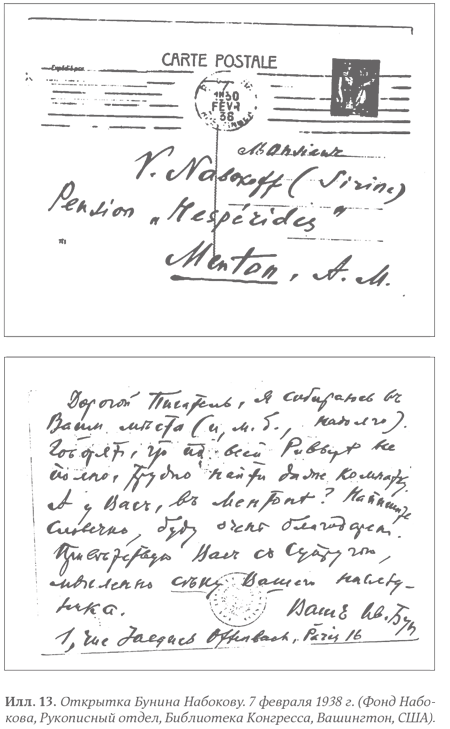 CARTE POSTALE
FEVR
38
Monsieur
V. Nabokoff (Sirine)
Pension „Hespérides"
Menton, A. M.
Дорогой Писатель, я собираюсь въ
Ваши мѣста (и, м. б., надолго).
Говорятъ, что на всей Ривьерѣ не
полно, трудно найти даже комнату.
А у Васъ, въ Ментонѣ? Напишите
словечко, буду очень благодаренъ.
Привѣтствую Васъ съ Супругой,
мысленно Вашего наслѣд-
ника.
Вашъ Ив. Бун
1, rue Jacques Offenbach, Paris 16
Илл. 13. Открытка Бунина Набокову. 7 февраля 1938 г. (Фонд Набо-
кова, Рукописный отдел, Библиотека Конгресса, Вашингтон, США).